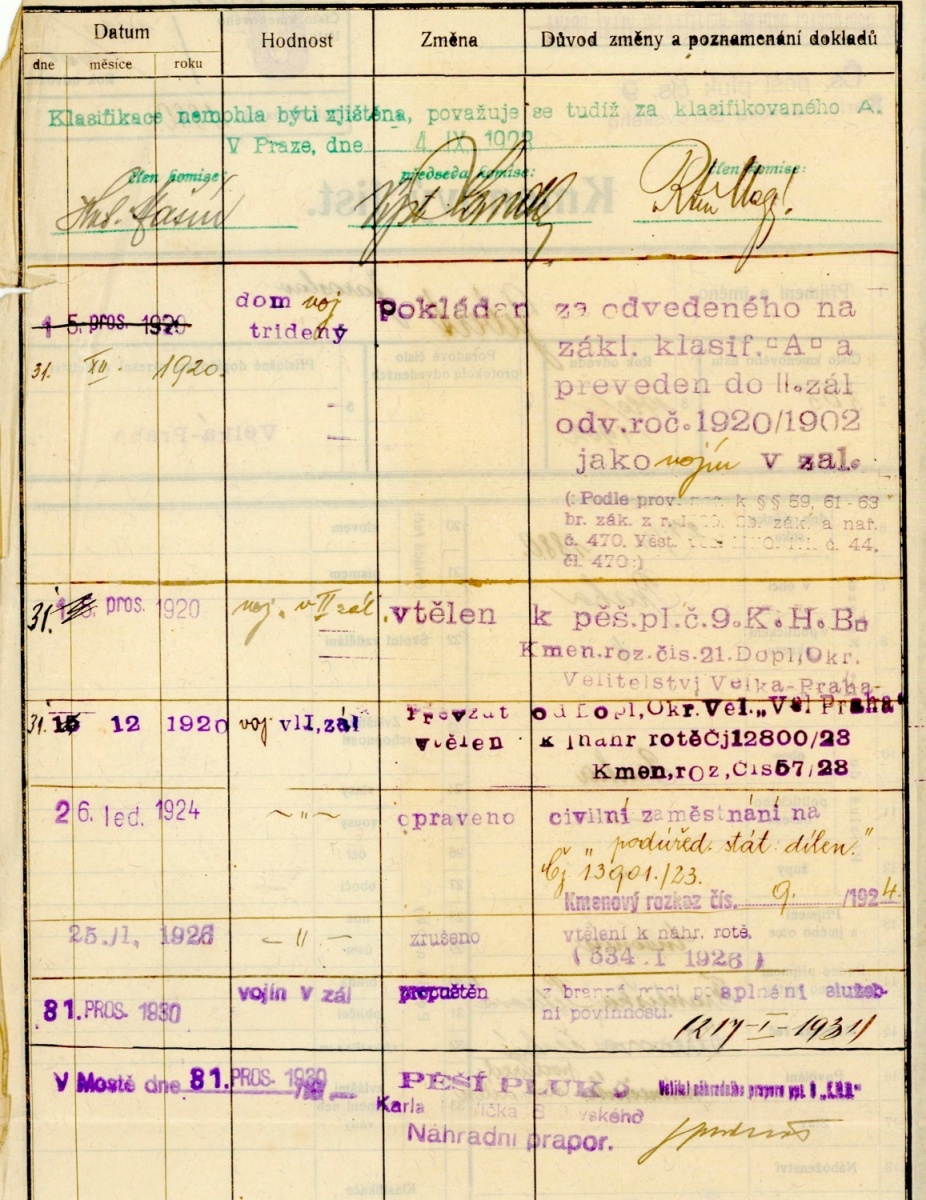 Datum Hodnost Změna Důvod změny a poznamenání dokladů
dne měsíce roku
Klasifikace nemohla býti zjištěna, považuje se tudíž za klasifikovaného A.
V Praze, dne 4 IX 1922
člen komise: předseda komise: člen komise:
dom voj
trideny
1 5. pros. 1920
31. XII. 1920.
Pokládan za odvedeného na
zákl. klasif. "A" a
preveden do II. zál
odv. roč. 1920/1902
jako vojín v zal.
(: Podle prov. k §§ 59, 61-63
br. zák. z r. zák. a nař.
č. 470. Věst. č. 44,
čl. 470:)
31. pros. 1920 voj. v II zál vtělen k pěš. pl. č. 9. K. H. B.
Kmen. roz. čis. 21. Dopl, Okr.
Velitelství Velka-Praha-
31. 15 12 1920 voj vII, zál Převzat od Dopl, Okr. Vel. „Vel Praha"
vtělen k náhr rotě Čj 12800/23
Kmen, roz, Čis 57/23
26. led. 1924 ~ " ~ opraveno civilní zaměstnání na
„podúřed. stát. dílen."
Čj 13901./23.
Kmenový rozkaz čís. 9. /1924.
25./I, 1926 — " — zrušeno vtělení k náhr. rotě.
(534. I 1926)
31. PROS. 1930 vojín v zál propuštěn z branné moci po splnění služeb-
ní povinnosti.
(217-I-1931)
V Mostě dne 31. PROS. 1930
PĚŠÍ PLUK 9
Karla
Náhradní prapor.
Velitel náhradního praporu vpt 9 „K.H.B"